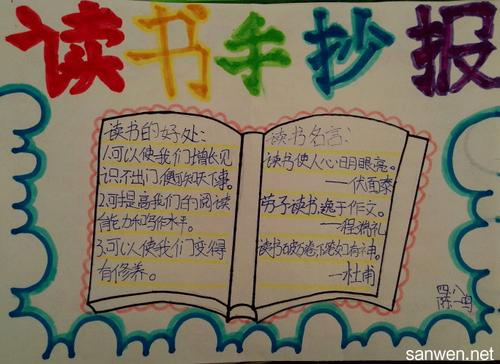 读书手抄报
读书的好处:
1.可以使我们增长见
识,不出门,便可知天下事。
2.可提高我们的阅读
能力和写作水平。
3.可以使我们变得
有修养。
读书名言:
读书使人心明眼亮。
——伏
劳于读书,逸于作文。
——程端礼
读书破万卷,下笔如有神。
——杜甫
四.八
陈一鸣
sanwen.net